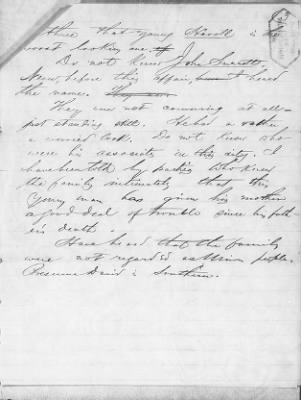 three that young Harold is the
worst looking one. of
Do not know John Surratt.
Never, before this affair, heard
the name. They are
They are not cowering at all—
not standing still. He had a rather
a worried look. Do not know who
were his associates in this city. I
have been told by parties who knew
the family intimately that this
young man has given his mother
a good deal of trouble since his fath
er's death.
Have heard that the family
were not regarded as Union people.
Presume David is Southern.